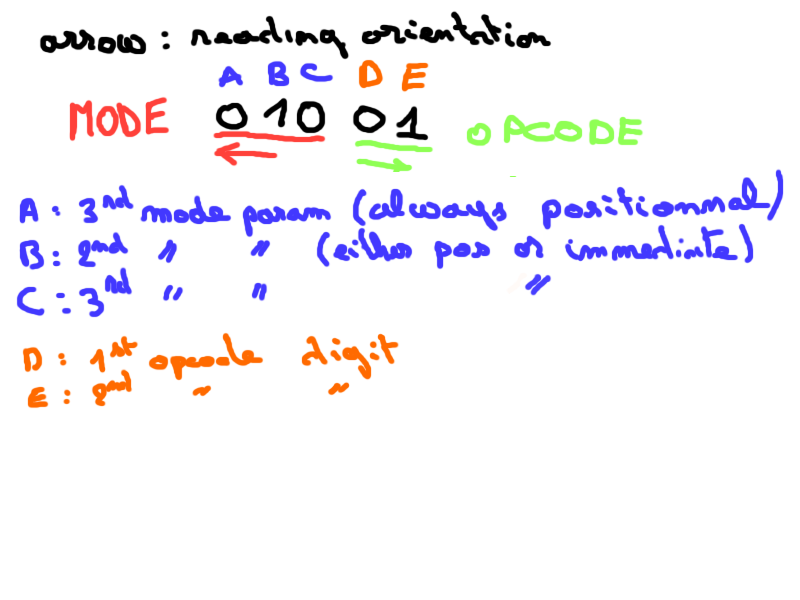 arrow: reading orientation
A B C D E
MODE 010 01 OPCODE
A: 3rd mode param (always positionnal)
B: 2nd " " (either pos or immediate)
C: 3rd " " "
D: 1st opcode digit
E: 2nd " "